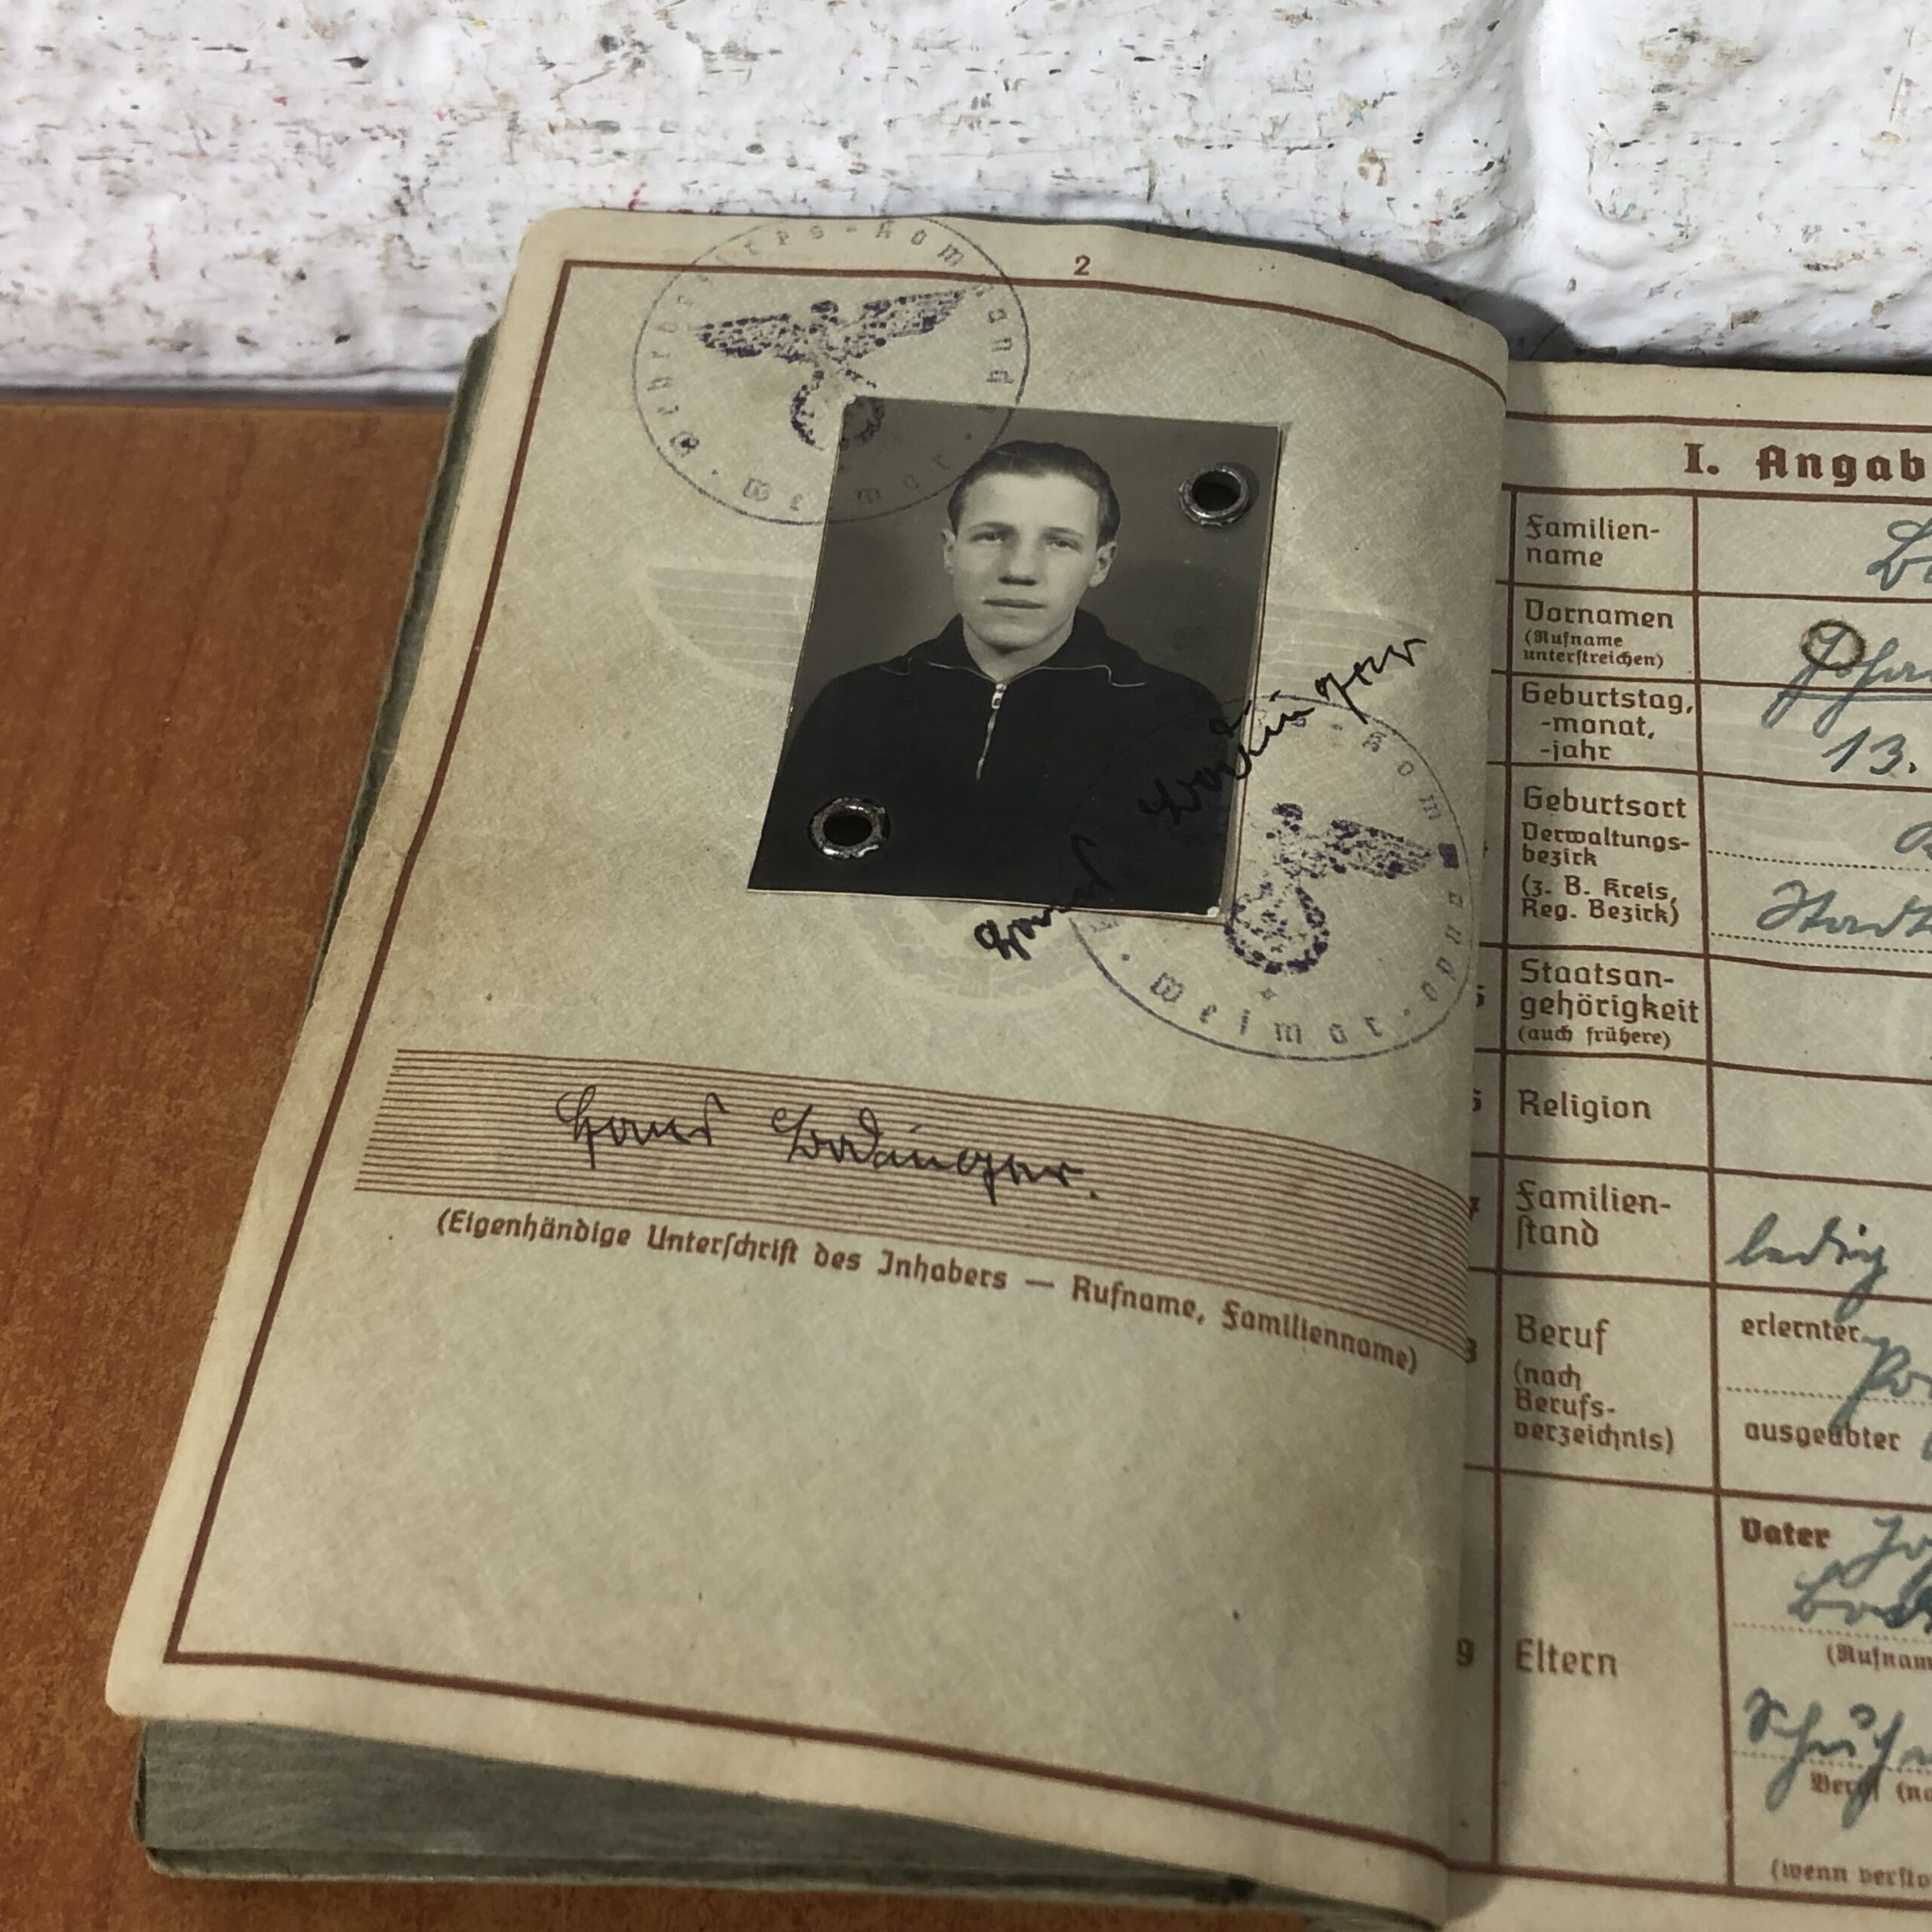 2
Wehrbezirks-Kommando
Weimar
Wehrbezirks-Kommando
Weimar
Hans
Hans
(Eigenhändige Unterschrift des Inhabers — Rufname, Familienname)
I. Angab
Familien-
name
Vornamen
(Rufname
unterstreichen)
Geburtstag,
-monat,
-jahr
13.
Geburtsort
Verwaltungs-
bezirk
(z. B. Kreis,
Reg. Bezirk)
Stadt
Staatsan-
gehörigkeit
(auch frühere)
Religion
Familien-
stand
ledig
Beruf
(nach
Berufs-
verzeichnis)
erlernter
ausgeübter
9 Eltern
Vater
(Rufnam
(wenn versto